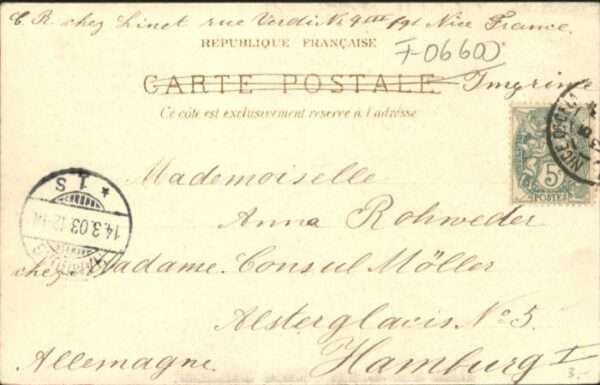 C. R. chez Linet rue Verdi No 9 Nice France.
REPUBLIQUE FRANÇAISE
F-06600
CARTE POSTALE Imprimé
Ce côté est exclusivement reservé à l'adresse
NICE
5c
POSTES
Mademoiselle
* 1 S
14.3.03
Anna Rohweder
chez Madame Consul Möller
Alsterglacis No 5.
Allemagne. Hamburg I
3.-